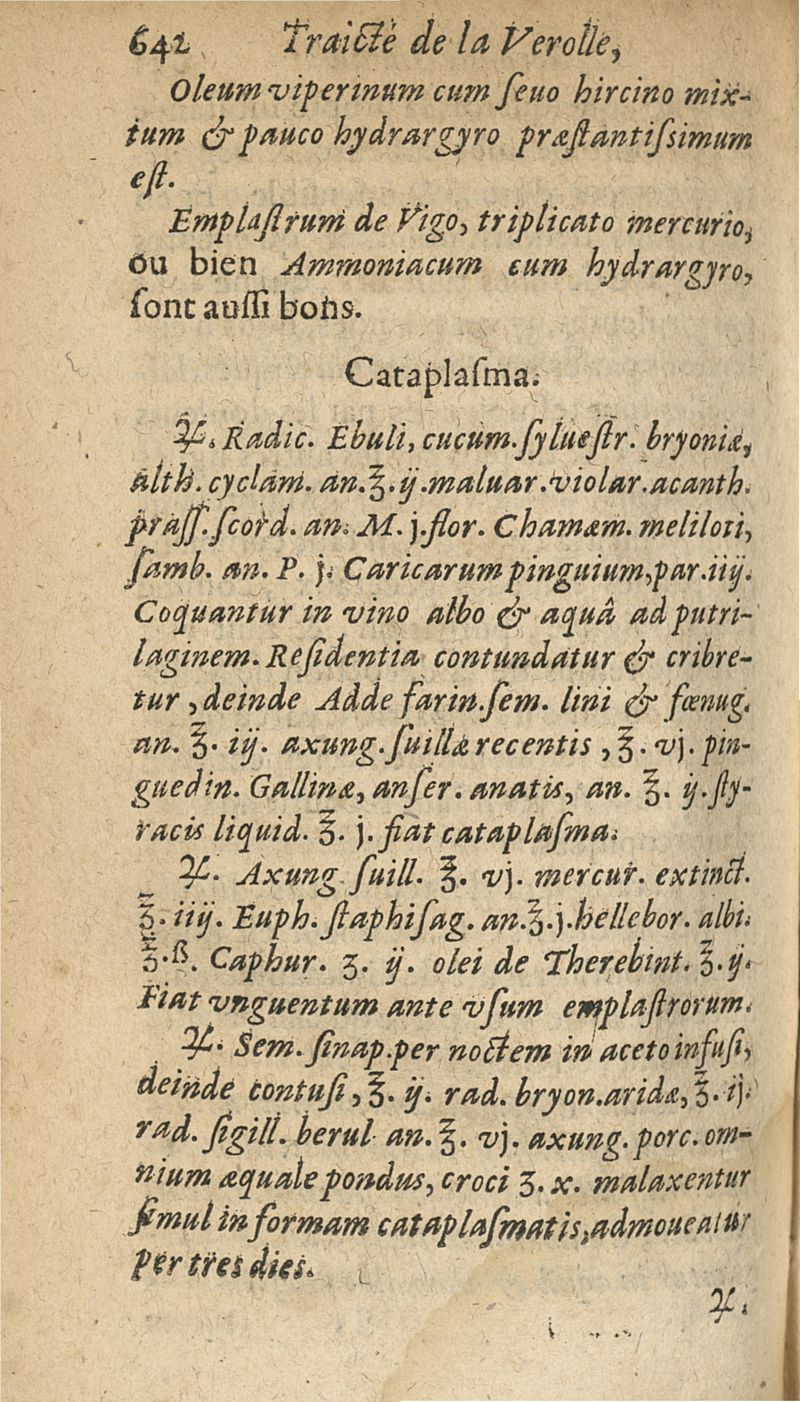 642 Traicté de la Verolle,
Oleum viperinum cum ſeuo hircino mix-
tum & pauco hydrargyro præſtantiſsimum
eſt.
Emplaſtrum de Vigo, triplicato mercurio,
ou bien Ammoniacum cum hydrargyro,
ſont auſſi bons.
Cataplaſma.
℞. Radic. Ebuli, cucum. ſylueſtr. bryoniæ,
alth. cyclam. an. ℥. ij. maluar. violar. acanth.
praſſ. ſcord. an. M. j. flor. Chamæm. meliloti,
ſamb. an. P. j. Caricarum pinguium, par. iiij.
Coquantur in vino albo & aquâ ad putri-
laginem. Reſidentia contundatur & cribre-
tur, deinde Adde farin. ſem. lini & fœnug.
an. ℥. iij. axung. ſuillæ recentis, ℥. vj. pin-
guedin. Gallinæ, anſer. anatis, an. ℥. ij. ſty-
racis liquid. ℥. j. fiat cataplaſma.
℞. Axung. ſuill. ℥. vj. mercur. extinct.
℥. iiij. Euph. ſtaphiſag. an. ℥. j. hellebor. albi.
℥. ß. Caphur. ʒ. ij. olei de Therebint. ℥. ij.
Fiat vnguentum ante vſum emplaſtrorum.
℞. Sem. ſinap. per noctem in aceto infuſi,
deinde contuſi, ℥. ij. rad. bryon. aridæ, ℥. ij.
rad. ſigill. berul an. ℥. vj. axung. porc. om-
nium æquale pondus, croci ʒ. x. malaxentur
ſimul in formam cataplaſmatis, admoueatur
per tres dies.
℞.